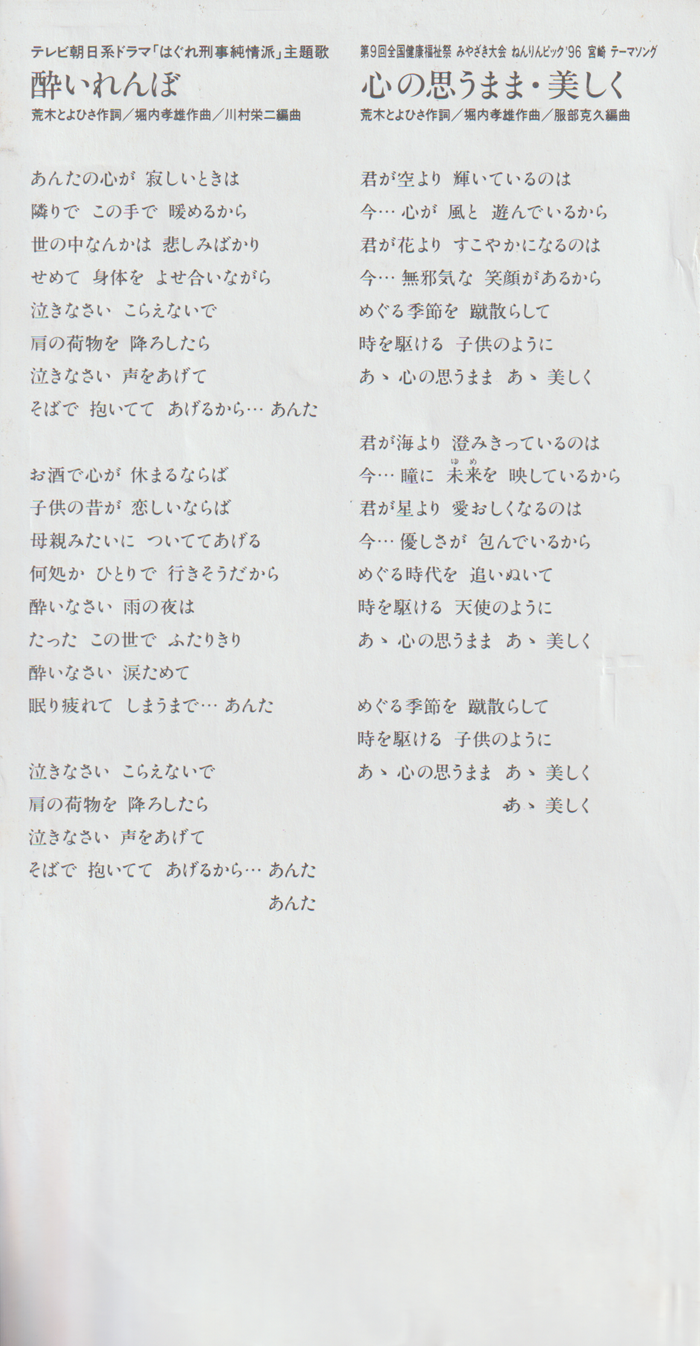 テレビ朝日系ドラマ「はぐれ刑事純情派」主題歌
酔いれんぼ
荒木とよひさ作詞／堀内孝雄作曲／川村栄二編曲
あんたの心が 寂しいときは
隣りで この手で 暖めるから
世の中なんかは 悲しみばかり
せめて 身体を よせ合いながら
泣きなさい こらえないで
肩の荷物を 降ろしたら
泣きなさい 声をあげて
そばで 抱いてて あげるから… あんた
お酒で心が 休まるならば
子供の昔が 恋しいならば
母親みたいに ついててあげる
何処か ひとりで 行きそうだから
酔いなさい 雨の夜は
たった この世で ふたりきり
酔いなさい 涙ためて
眠り疲れて しまうまで… あんた
泣きなさい こらえないで
肩の荷物を 降ろしたら
泣きなさい 声をあげて
そばで 抱いてて あげるから… あんた
あんた
第9回全国健康福祉祭 みやざき大会 ねんりんピック'96 宮崎 テーマソング
心の思うまま・美しく
荒木とよひさ作詞／堀内孝雄作曲／服部克久編曲
君が空より 輝いているのは
今… 心が 風と 遊んでいるから
君が花より すこやかになるのは
今… 無邪気な 笑顔があるから
めぐる季節を 蹴散らして
時を駆ける 子供のように
あゝ 心の思うまま あゝ 美しく
君が海より 澄みきっているのは
ゆめ
今… 瞳に 未来を 映しているから
君が星より 愛おしくなるのは
今… 優しさが 包んでいるから
めぐる時代を 追いぬいて
時を駆ける 天使のように
あゝ 心の思うまま あゝ 美しく
めぐる季節を 蹴散らして
時を駆ける 子供のように
あゝ 心の思うまま あゝ 美しく
あゝ 美しく